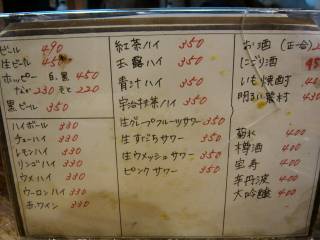 ビール 490
生ビール 450
ホッピー 白.黒 450
なか 230 そと 220
黒ビール 350
ハイボール 330
チューハイ 330
レモンハイ 330
リンゴハイ 330
ウメハイ 330
ウーロンハイ 330
赤.ワイン 330
紅茶ハイ 350
玉露ハイ 350
青汁ハイ 350
宇治抹茶ハイ 350
生グレープフルーツサワー 350
生すだちサワー 350
生ウメッシュサワー 350
ピンクサワー 350
お酒 (正一合)
にごり酒
いも焼酎
明るい農村
菊水 400
樽酒 400
宝寿 400
辛丹波 400
大吟醸 400